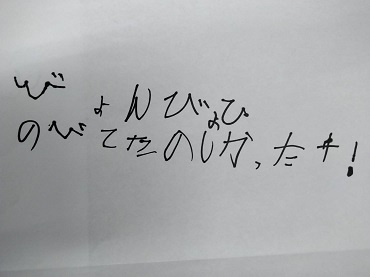 びょんびょひ
のびてたのしかったサ!